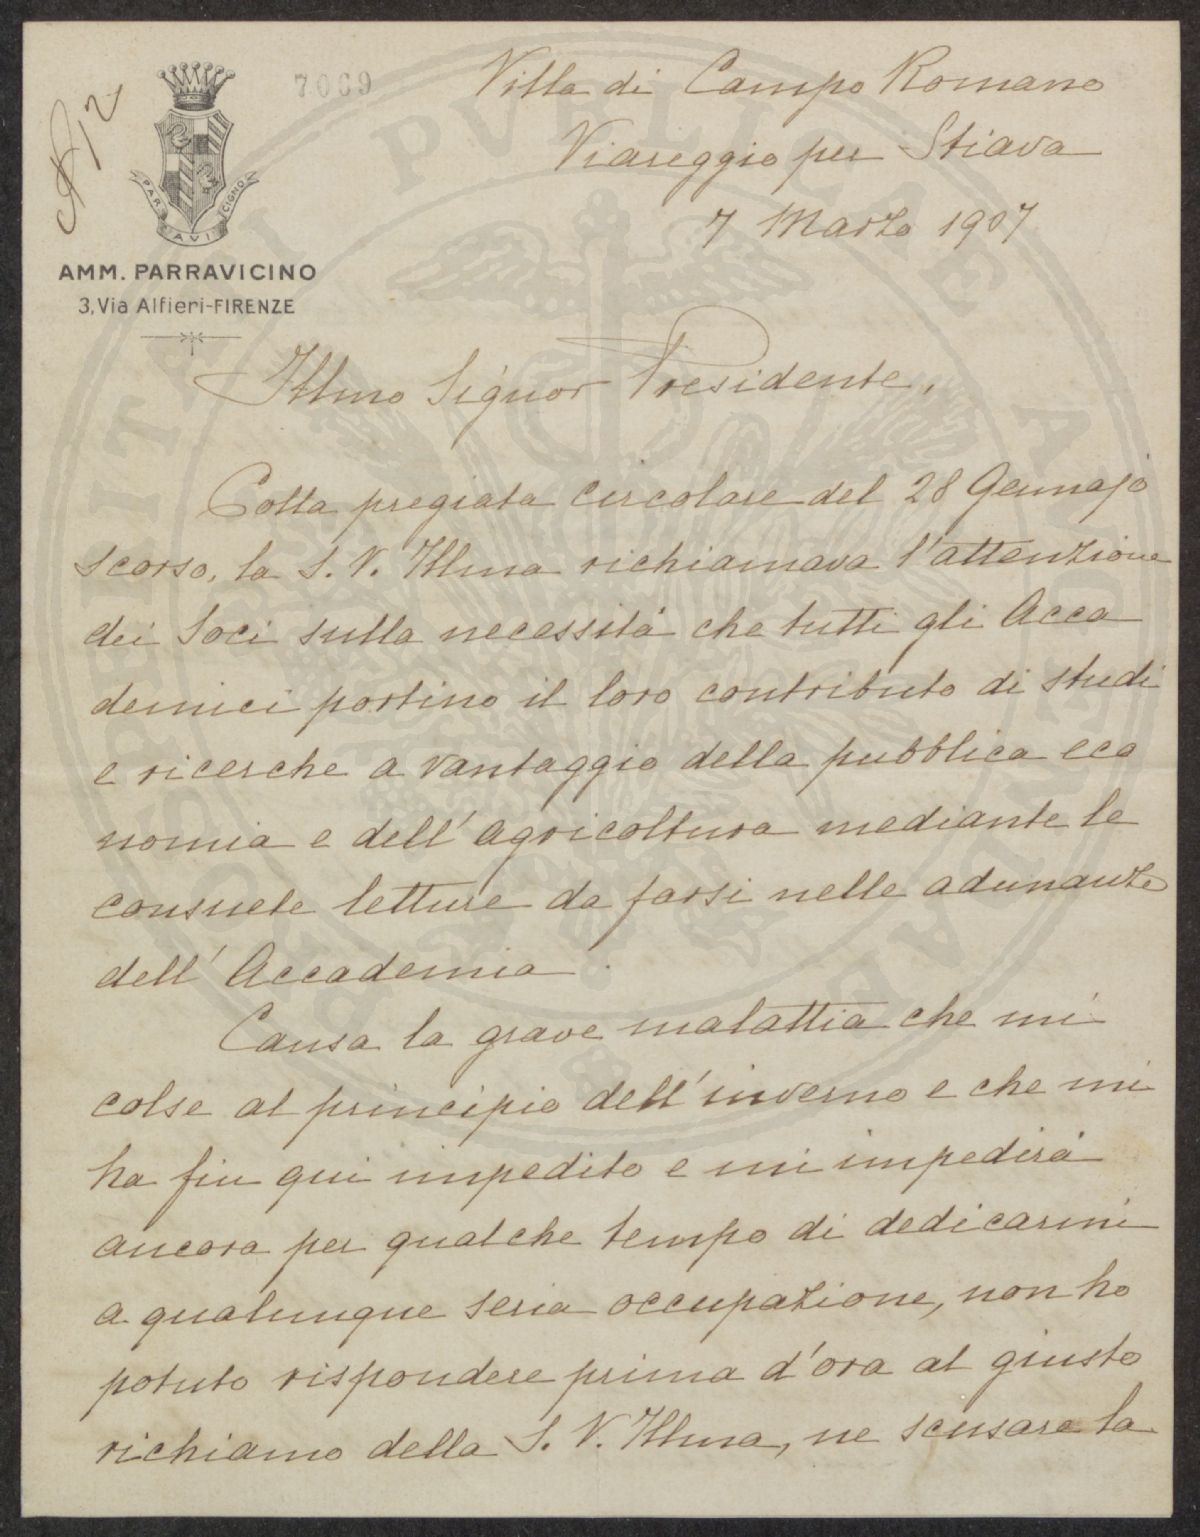 7069
A12
PAR AVI CIGNO
AMM. PARRAVICINO
3, Via Alfieri-FIRENZE
Villa di Campo Romano
Viareggio per Stiava
7 Marzo 1907
Illmo Signor Presidente,
Colla pregiata circolare del 28 Gennajo
scorso, la S. V. Illma richiamava l'attenzione
dei Soci sulla necessità che tutti gli Acca
demici portino il loro contributo di studi
e ricerche a vantaggio della pubblica eco
nomia e dell'agricoltura mediante le
consuete letture da farsi nelle adunanze
dell'Accademia.
Causa la grave malattia che mi
colse al principio dell'inverno e che mi
ha fin qui impedito e mi impedirà
ancora per qualche tempo di dedicarmi
a qualunque seria occupazione, non ho
potuto rispondere prima d'ora al giusto
richiamo della S. V. Illma, ne scusare la